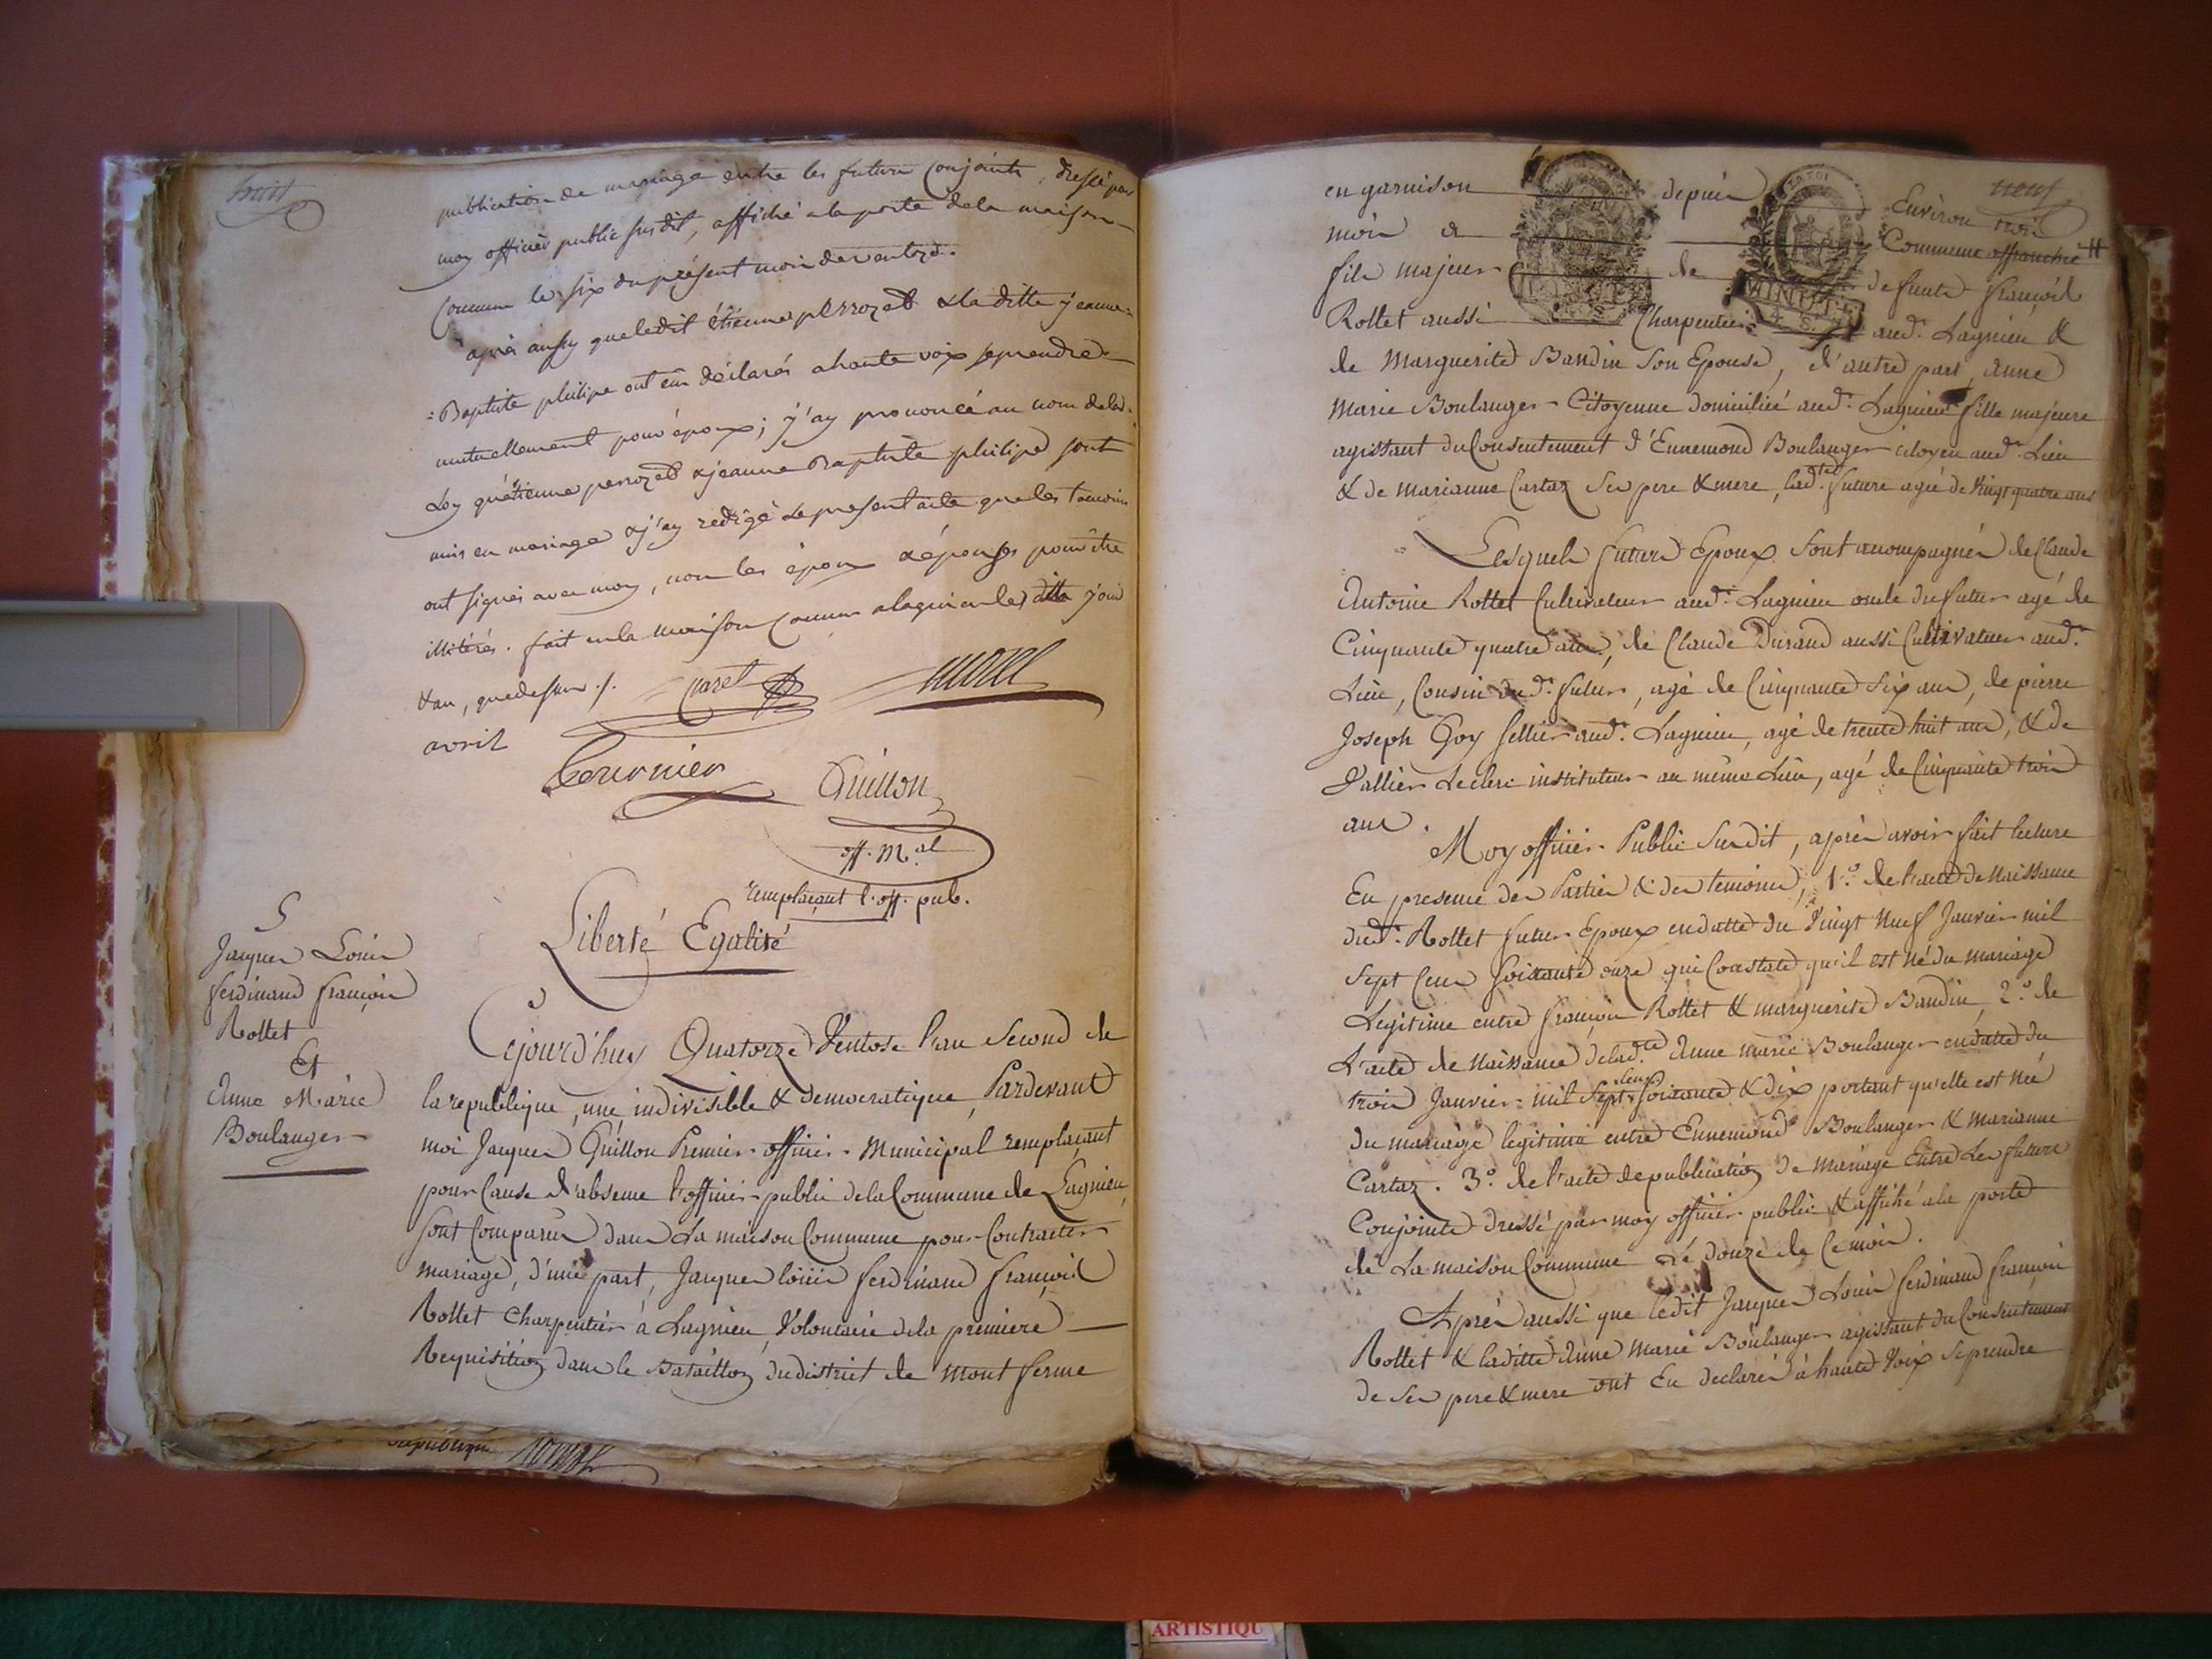 huit
publication de mariage entre les futurs Conjoints, dressé par
moy officier public susdit, affiché a la porte de la maison
Commune le six du présent mois de ventoze.
après aussy que ledit étienne perrozet & la ditte jeanne=
=Baptiste philipe ont eu déclarés a haute voix se prendre
mutuellement pour époux; j'ay prononcé au nom de la
Loy qu'étienne perrozet & jeanne Baptiste philipe sont
unis en mariage & j'ay redigé le present acte que les temoins
ont signés avec moy, non les époux & épouses pour être
illitérés. fait en la maison Commune a lagnieu les dits jour
& an, que dessus ./.
avril
morel
Guillon
off. M.al
remplaçant l'off. pub.
5
Jacques Louis
ferdinand françois
Rollet
Et
Anne Marie
Boulanger
Liberté Egalité
Cejourd'huy Quatorze Ventose l'an second de
la republique, une indivisible & democratique, Pardevant
moi Jacques Guillon Premier officier Municipal remplaçant
pour Cause d'absence l'officier public de la Commune de Lagnieu
sont Comparus dans La maison Commune pour Contracter
mariage, d'une part, Jacques louis ferdinand françois
Rollet Charpentier à Lagnieu, Volontaire de la premiere
Requisition dans le Bataillon du district de mont ferme
republique
neuf
en garnison depuis Environ trois
mois a Commune affranchie
fils majeur de defunt françois
Rollet aussi Charpentier aud. Lagnieu &
de Marguerite Baudin son Epouse, d'autre part, Anne
Marie Boulanger Citoyenne domiciliée aud. Lagnieu fille majeure
agissant du Consentement d'Ennemond Boulanger citoyen aud. Lieu
& de marianne Cartaz ses pere & mere, lad.te future agée de vingt quatre ans
Lesquels futurs Epoux sont acompagnés de Claude
Antoine Rollet Cultivateur aud. Lagnieu oncle du futur agé de
Cinquante quatre ans, de Claude Durand aussi Cultivateur aud.
Lieu, Cousin du d. futur, agé de Cinquante six ans, de pierre
Joseph Goy sellier aud. Lagnieu, agé de trente huit ans, & de
Vallier Leclerc instituteur au même Lieu, agé de Cinquante trois
ans.
Moy officier Public susdit, après avoir fait lecture
En presence des Parties & des temoins, 1.º de l'acte de Naissance
dud. Rollet futur Epoux en datte du Vingt Neuf Janvier mil
sept Cens soixante onze qui Constate qu'il est Né du mariage
Legitime entre françois Rollet & marguerite Baudin, 2.º de
L'acte de Naissance de lad.te Anne marie Boulanger en datte du
trois Janvier mil sept cens soixante & dix portant qu'elle est Née
du mariage legitime entre Ennemond Boulanger & Marianne
Cartaz. 3.º de l'acte de publication de Mariage Entre Les futurs
Conjoints dressé par moy officier public & affiché a la porte
de La maison Commune Le douze de Ce mois.
Après aussi que ledit Jacques Louis ferdinand françois
Rollet & laditte Anne Marie Boulanger agissant du Consentement
de ses pere & mere ont Eu declarés à haute Voix se prendre
ARTISTIQU